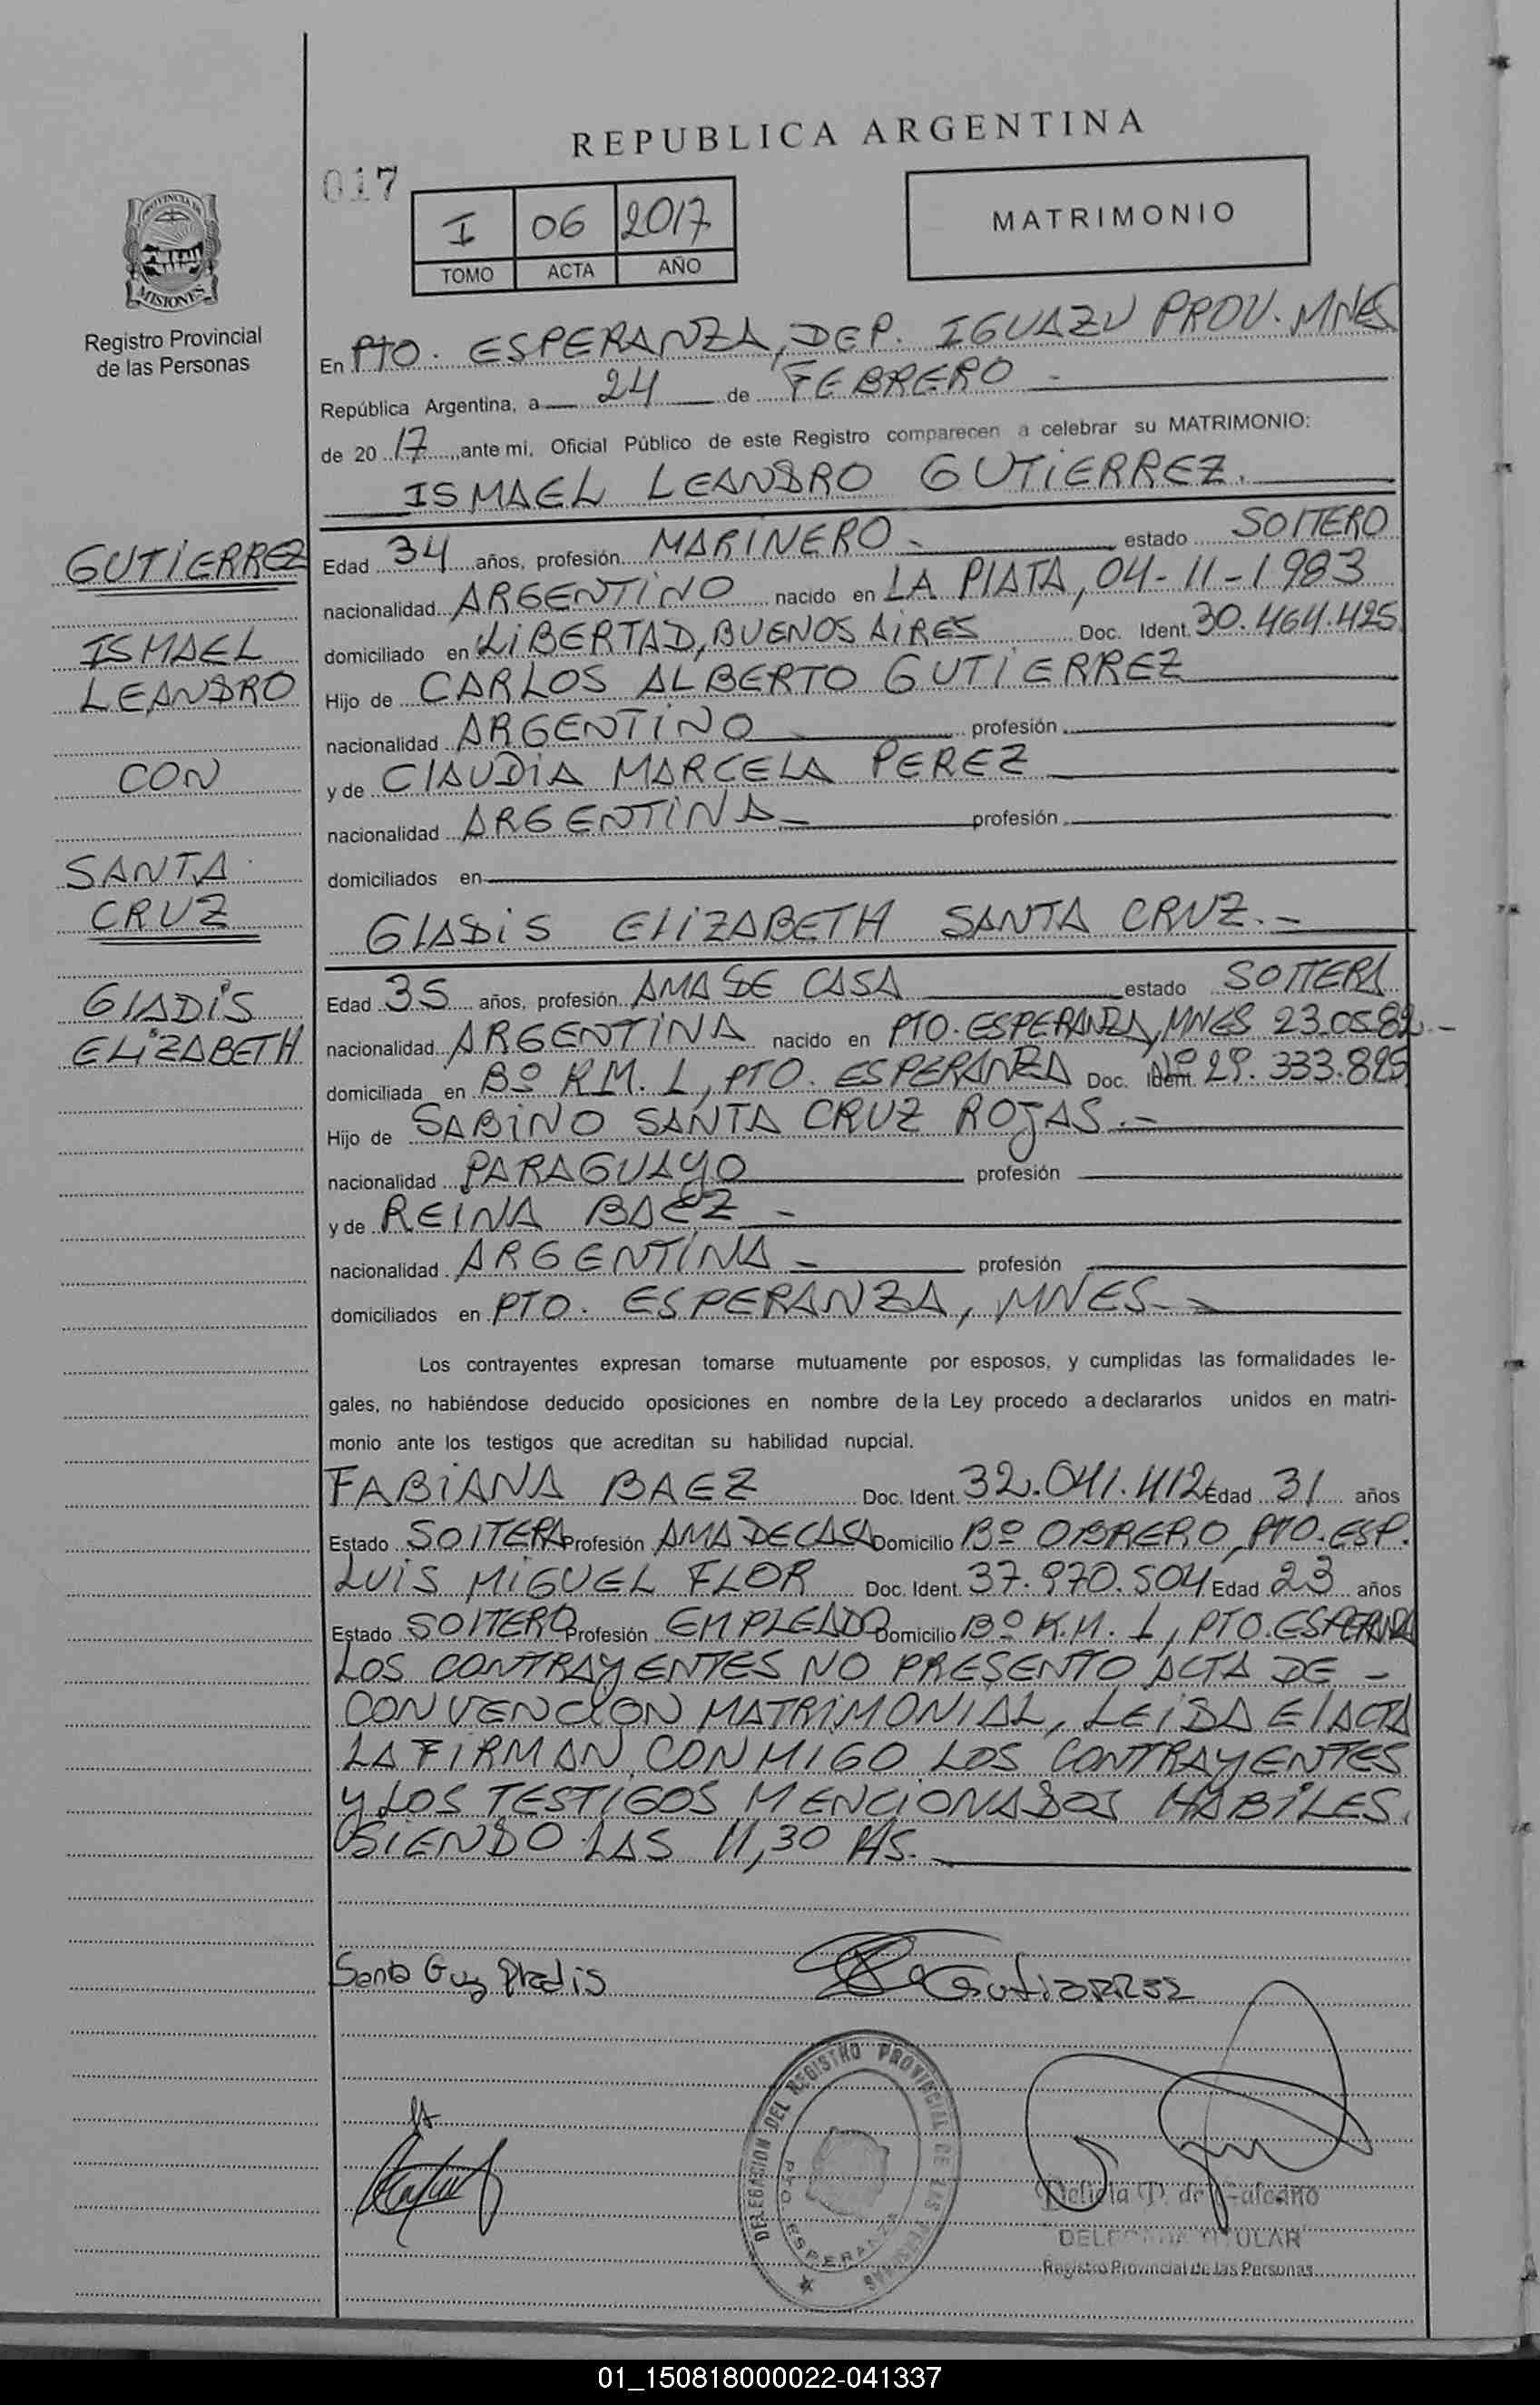 REPUBLICA ARGENTINA
017
I 06 2017
TOMO ACTA AÑO
MATRIMONIO
PROVINCIA DE
MISIONES
Registro Provincial
de las Personas
En PTO. ESPERANZA, DEP. IGUAZU PROV. MNES
República Argentina, a 24 de FEBRERO -
de 20 17 ,ante mi, Oficial Público de este Registro comparecen a celebrar su MATRIMONIO:
ISMAEL LEANDRO GUTIERREZ.
GUTIERREZ
ISMAEL
LEANDRO
CON
SANTA
CRUZ
GLADIS
ELIZABETH
Edad 34 años, profesión MARINERO - estado SOLTERO
nacionalidad ARGENTINO nacido en LA PLATA, 04-11-1983
domiciliado en LIBERTAD, BUENOS AIRES Doc. Ident. 30.464.425
Hijo de CARLOS ALBERTO GUTIERREZ
nacionalidad ARGENTINO - profesión
y de CLAUDIA MARCELA PEREZ
nacionalidad ARGENTINA - profesión
domiciliados en
GLADIS ELIZABETH SANTA CRUZ. -
Edad 35 años, profesión AMA DE CASA estado SOLTERA
nacionalidad ARGENTINA nacido en PTO. ESPERANZA, MNES 23.05.82 -
domiciliada en Bº KM. 1, PTO. ESPERANZA Doc. Ident. Nº 29.333.895
Hijo de SABINO SANTA CRUZ ROJAS. -
nacionalidad PARAGUAYO profesión
y de REINA BAEZ -
nacionalidad ARGENTINA - profesión
domiciliados en PTO. ESPERANZA, MNES. -
Los contrayentes expresan tomarse mutuamente por esposos, y cumplidas las formalidades le-
gales, no habiéndose deducido oposiciones en nombre de la Ley procedo a declararlos unidos en matri-
monio ante los testigos que acreditan su habilidad nupcial.
FABIANA BAEZ Doc. Ident. 32.041.412 Edad 31 años
Estado SOLTERA Profesión AMA DE CASA Domicilio Bº OBRERO, PTO. ESP.
LUIS MIGUEL FLOR Doc. Ident. 37.970.504 Edad 23 años
Estado SOLTERO Profesión EMPLEADO Domicilio Bº K.M. 1, PTO. ESPERANZA
LOS CONTRAYENTES NO PRESENTO ACTA DE -
CONVENCION MATRIMONIAL, LEIDA EL ACTA
LA FIRMAN CONMIGO LOS CONTRAYENTES
Y LOS TESTIGOS MENCIONADOS HABILES.
SIENDO LAS 11,30 HS.
Santa Cruz Gladis
Gutierrez
DELEGACION DEL REGISTRO PROVINCIAL DE LAS PERSONAS
PTO. ESPERANZA
DELEGADA TITULAR
Registro Provincial de las Personas
01_150818000022-041337